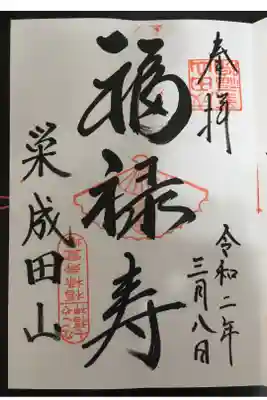 奉拝
令和二年
三月八日
福禄寿
栄成田山